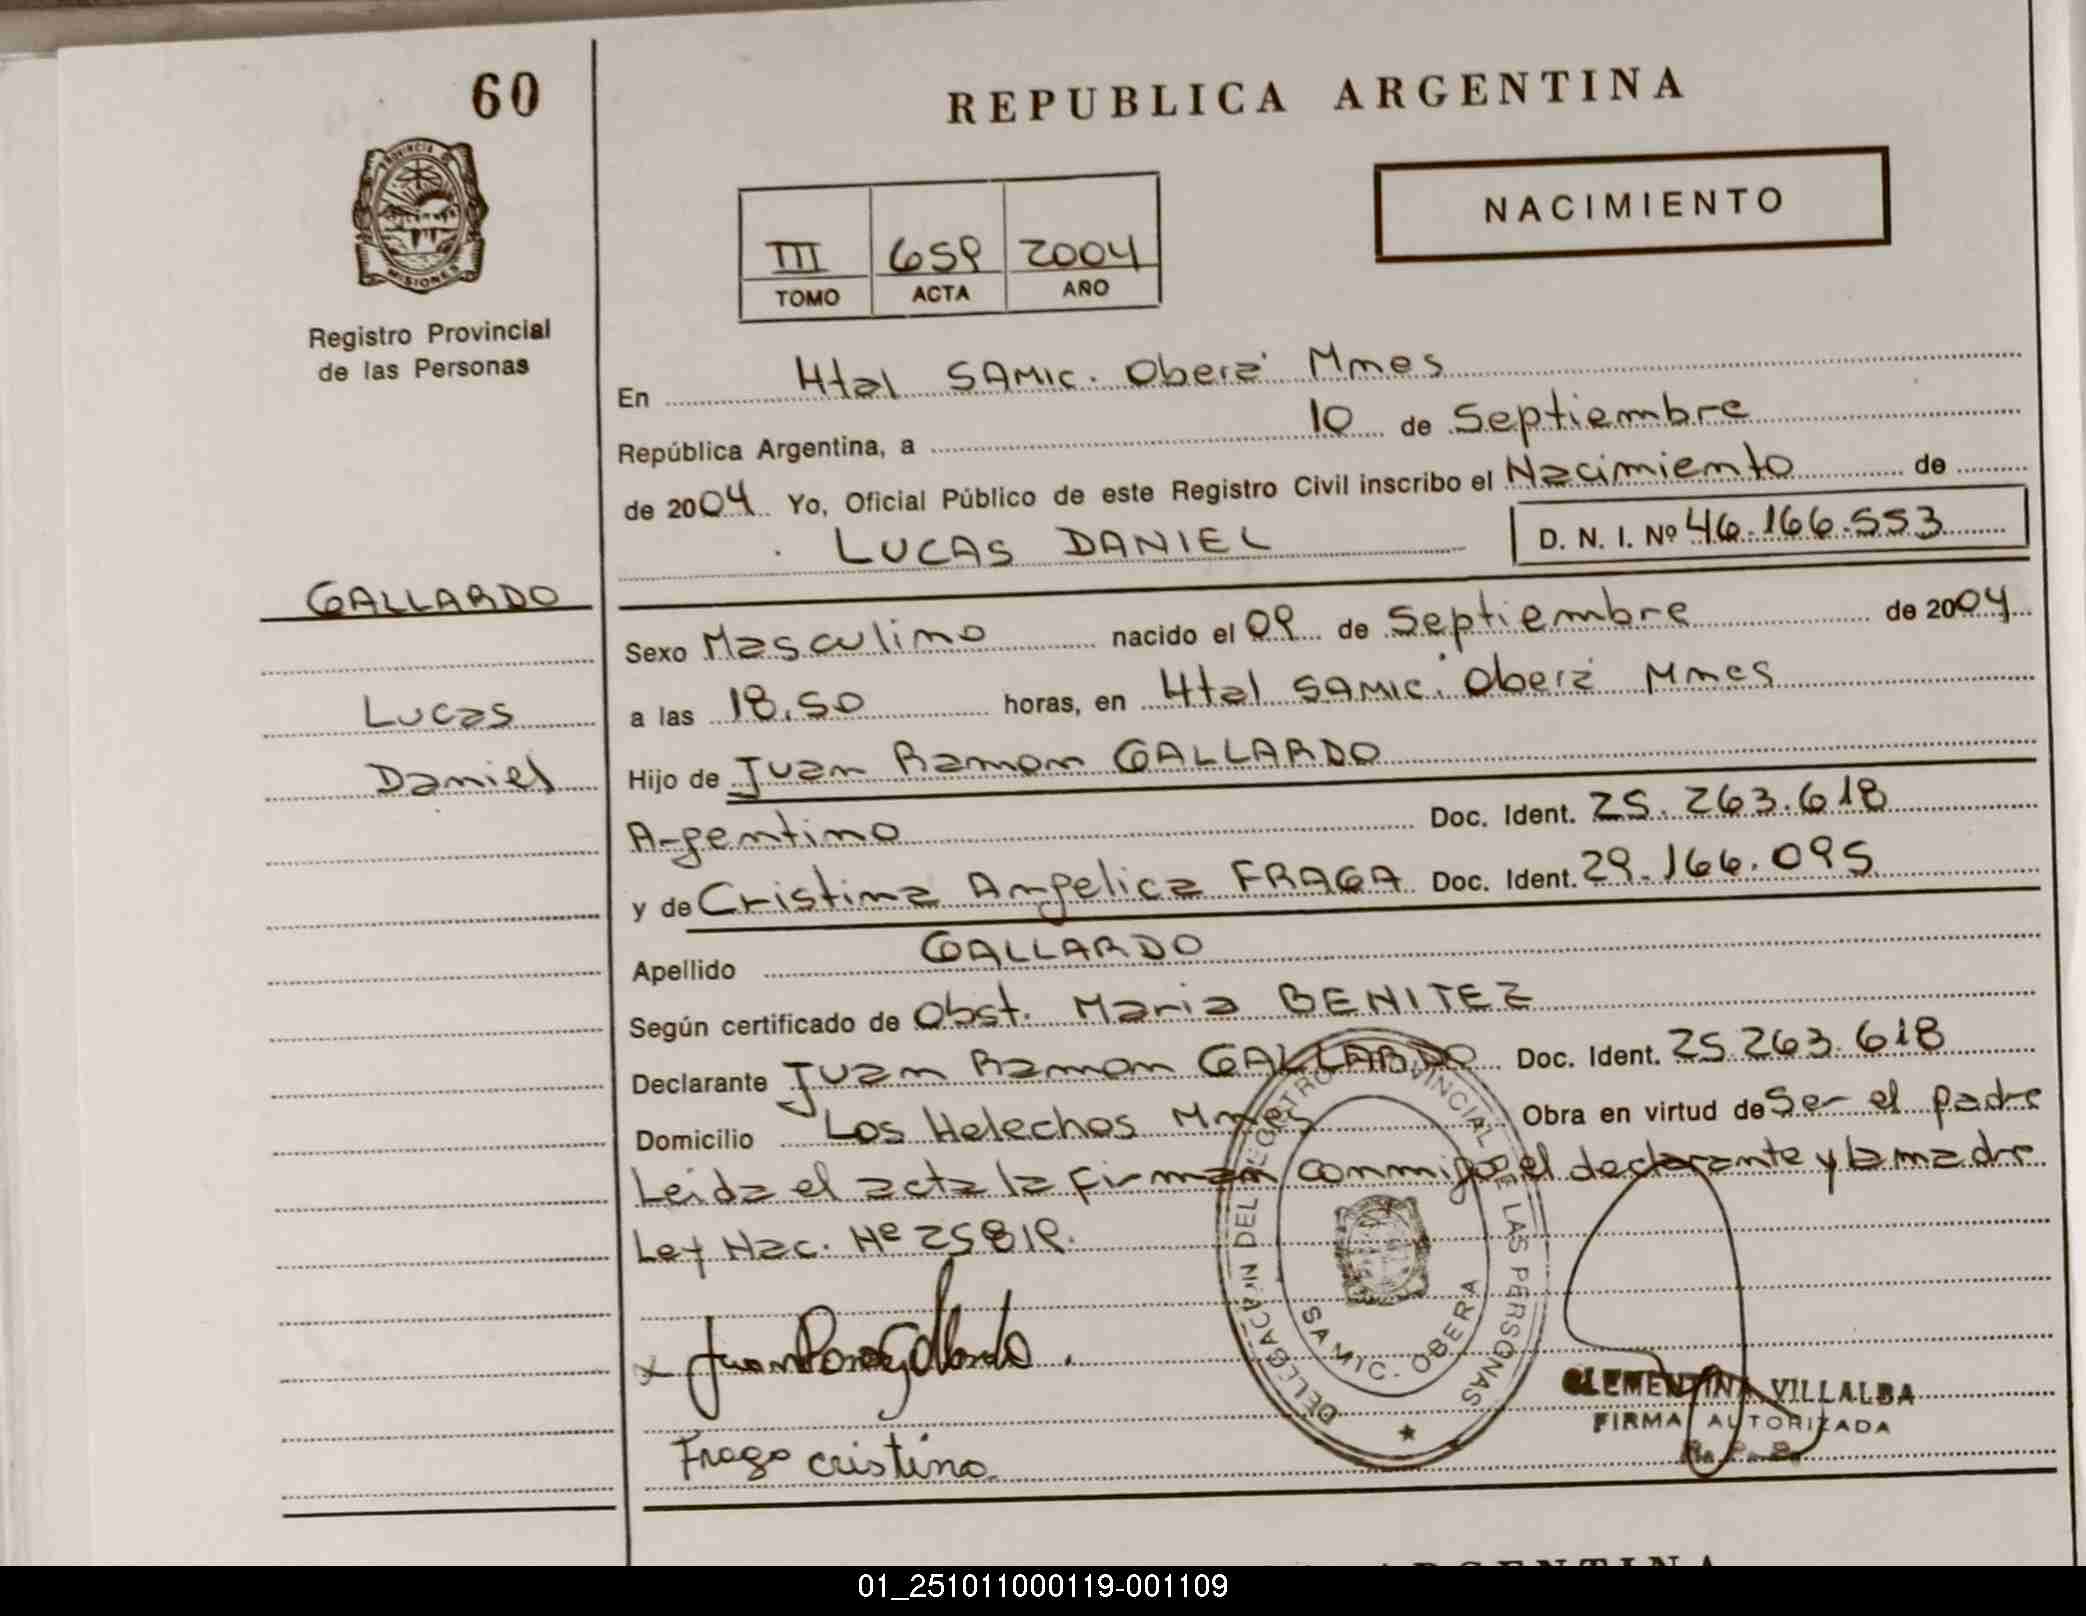 60
REPUBLICA ARGENTINA
NACIMIENTO
PROVINCIA DE
MISIONES
III 659 2004
TOMO ACTA AÑO
Registro Provincial
de las Personas
En Htal SAMIC. Oberá Mnes
República Argentina, a 10 de Septiembre
de 2004 Yo, Oficial Público de este Registro Civil inscribo el Nacimiento de
LUCAS DANIEL D. N. I. Nº 46.166.553
GALLARDO
Lucas
Daniel
Sexo Masculino nacido el 09 de Septiembre de 2004
a las 18.50 horas, en Htal SAMIC. Oberá Mnes
Hijo de Juan Ramon GALLARDO
Argentino Doc. Ident. 25.263.618
y de Cristina Angelica FRAGA Doc. Ident. 29.166.095
Apellido GALLARDO
Según certificado de Obst. Maria BENITEZ
Declarante Juan Ramon GALLARDO Doc. Ident. 25.263.618
Domicilio Los Helechos Mnes Obra en virtud de Ser el padre
Leida el acta la firman conmigo el declarante y la madre
Ley Nac. Nº 25819.
DELEGACION DEL REGISTRO PROVINCIAL DE LAS PERSONAS
SAMIC. OBERA
x Juan Ramon Gallardo.
CLEMENTINA VILLALBA
FIRMA AUTORIZADA
Fraga cristina
ARGENTINA
01_251011000119-001109